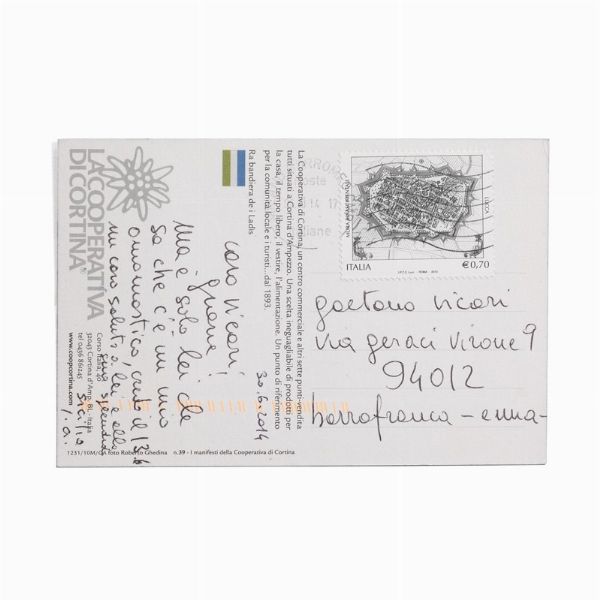 LA COOPERATIVA
DI CORTINA
Corso Italia 40
32043 Cortina d'Amp. BL - Italia
tel 0436 861245
www.coopcortina.com
La Cooperativa di Cortina, un centro commerciale e altri sette punti-vendita
tutti situati a Cortina d'Ampezzo. Una scelta ineguagliabile di prodotti per
la casa, il tempo libero, il vestire, l'alimentazione. Un punto di riferimento
per la comunità locale e i turisti... dal 1893.
Ra bandiera de i Ladis
30.6.2014
caro Vicari!
grazie!
Ma è solo lei che
sa che c'è un mio
onomastico, credo il 13.6
un caro saluto a lei e alla
sua splendida
Sicilia
1231/10M/GA foto Roberto Ghedina n.39 - I manifesti della Cooperativa di Cortina
LUCCA
ITALIA
€0,70
gaetano vicari
via geraci virone 9
94012
barrafranca - enna -